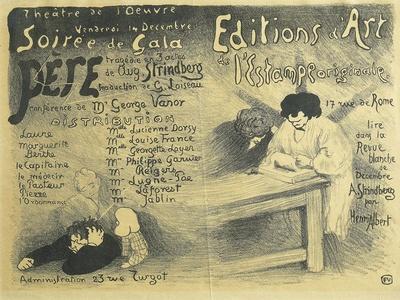 Théâtre de l'Oeuvre
Vendredi 14 Décembre
Soirée de Gala
PÈRE
tragédie en 3 actes
de Aug. Strindberg
traduction de G. Loiseau
Conférence de Mr George Vanor
DISTRIBUTION
Laure Mlle Lucienne Dorsy
Marguerite Mlle Louise France
Berthe Mlle Georgette Loyer
le Capitaine Mr Philippe Garnier
le médecin Mr Reigers
le Pasteur Mr Lugné-Poe
Pierre Mr Laforest
l'Ordonnance Mr Jablin
Administration 23 rue Turgot
Editions d'Art
de l'Estampe originale
17 rue de Rome
lire
dans la
Revue
blanche
de
Décembre
A. Strindberg
par
Henri Albert
FV